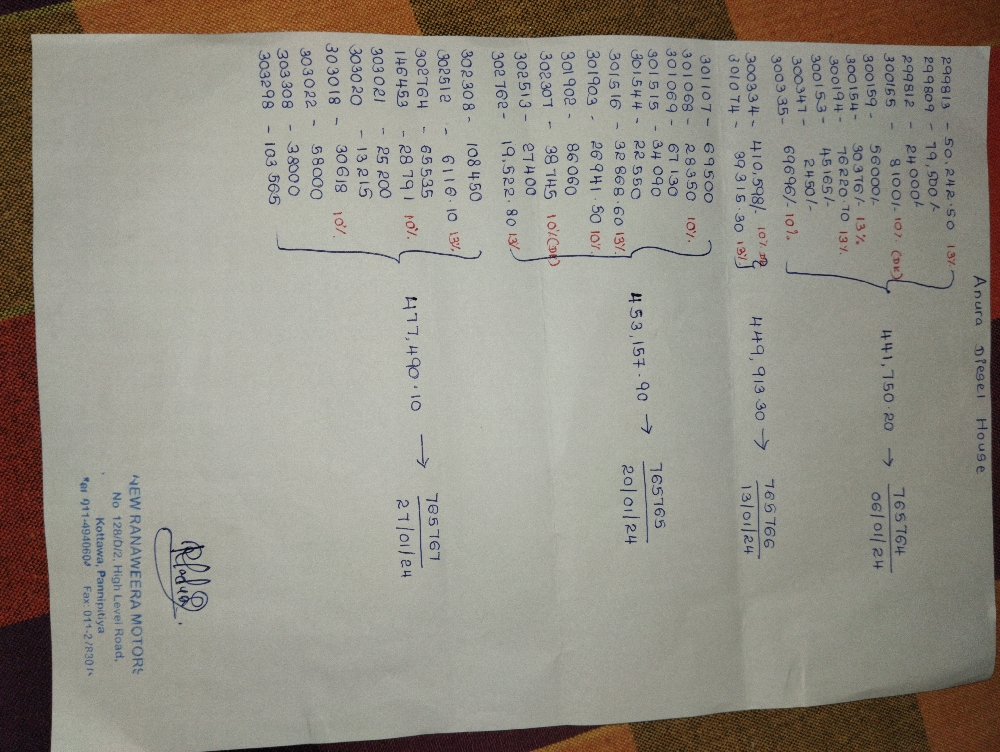 Anura Diesel House
299813 - 50,242.50 13%
299809 - 79,500/-
299812 - 24,000/-
300155 - 8100/- 10% (DR)
300159 - 56000/-
300154 - 30376/- 13%
300194 - 76220.70 13%
300153 - 45165/-
300347 - 2450/-
300335 - 69696/- 10%
441,750.20 → 765764
06/01/24
300334 - 410,598/- 10% DR
301074 - 39315.30 13%
449,913.30 → 765766
13/01/24
301107 - 69500
301068 - 28350 10%
301069 - 67130
301515 - 34090
301544 - 22550
301516 - 32868.60 13%
301903 - 26941.50 10%
301902 - 86060
302307 - 38745 10% (DR)
302513 - 27400
302762 - 19,522.80 13%
453,157.90 → 765765
20/01/24
302308 - 108450
302512 - 6116.10 13%
302764 - 65535
146453 - 28791 10%
303021 - 25200
303020 - 13215
303018 - 30618 10%
303022 - 58000
303308 - 38000
303298 - 103,565
477,490.10 → 765767
27/01/24
NEW RANAWEERA MOTORS
No 128/D/2, High Level Road,
Kottawa, Pannipitiya
Fax: 011-27830